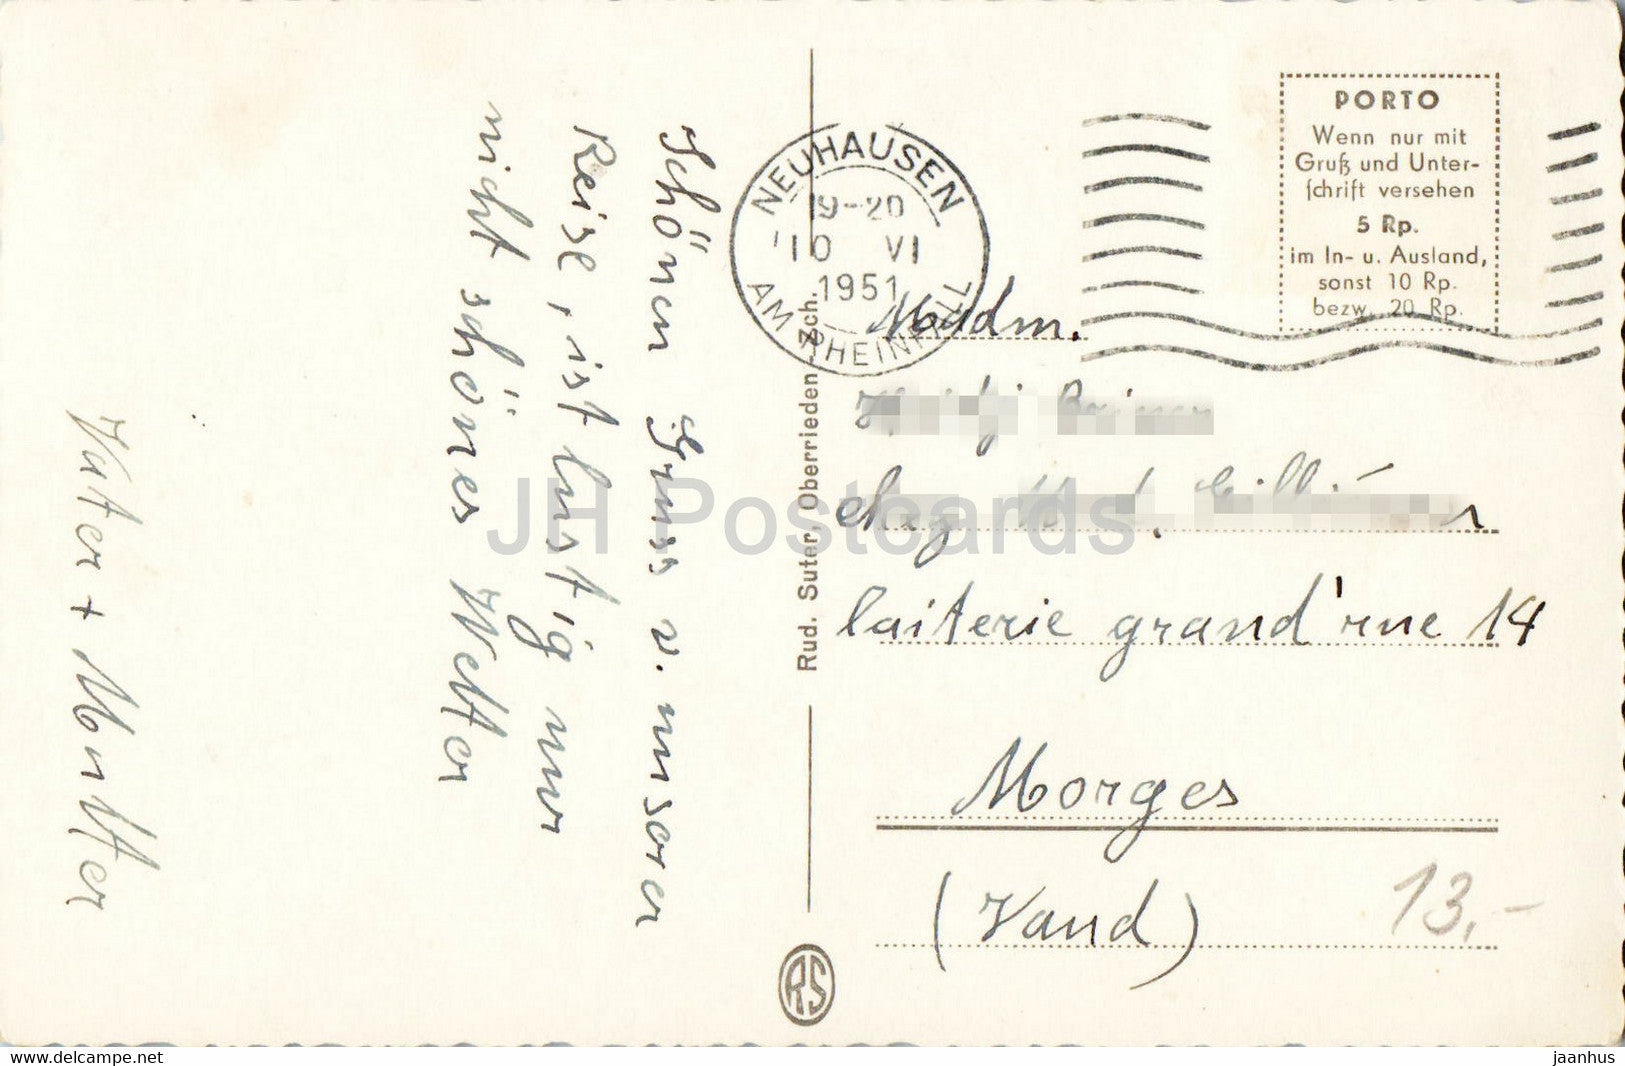 Schönen Gruss v. unserer
Reise, ist lustig nur
nicht schönes Wetter
Vater + Mutter
NEUHAUSEN
19-20
10 VI
1951
AM RHEINFALL
PORTO
Wenn nur mit
Gruß und Unter-
schrift versehen
5 Rp.
im In- u. Ausland,
sonst 10 Rp.
bezw. 20 Rp.
Madm.
chez
laiterie grand'rue 14
Morges
(Vaud)
13.-
Rud. Suter, Oberrieden Zch.
RS
JH Postcards
www.delcampe.net
jaanhus